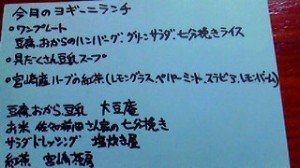 今月のヨギーニランチ
・ワンプレート
豆腐、おからのハンバーグ、グリーンサラダ、七分挽きライス
・具だくさん豆乳スープ
・宮崎産ハーブの紅茶(レモングラス、ペパーミント、ステビア、レモンバーム)
豆腐、おから、豆乳 大豆庵
お米 佐々前田さん家の七分挽き
サラダドレッシング 塩炊き屋
紅茶 宮崎茶房